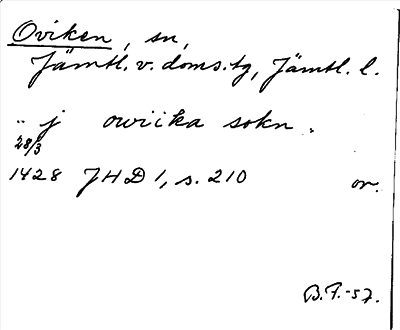 Oviken, sn,
Jämtl. v. doms.tg, Jämtl. l.
" j owiika sokn.
28/3
1428 JHD 1, s. 210 or.
B.F.-57.